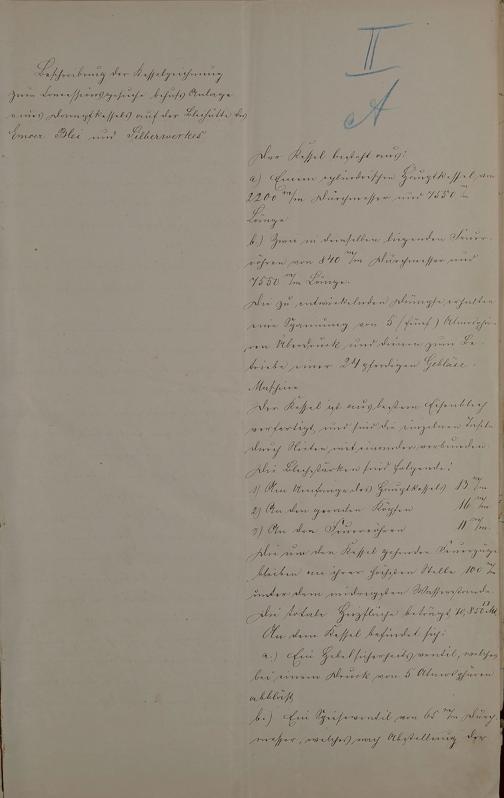 Beschreibung der Kesselzeichnung
zum Concessionsgesuche behufs Anlage
eines Dampfkessels auf der Bleihütte des
Emser Blei und Silberwerkes
II
A
Der Kessel besteht aus:
a) Einem cylindrischen Hauptkessel von
2200 m/m Durchmesser und 7550 m/m
Länge
b) Zwei in demselben liegenden Feuer-
röhren von 840 m/m Durchmesser und
7550 m/m Länge.
Die zu entwickelnden Dämpfe erhalten
eine Spannung von 5 (fünf) Atmosphä-
ren Überdruck und dienen zum Be-
triebe einer 24 pferdigen Gebläse-
Maschine
Der Kessel ist aus bestem Eisenblech
verfertigt, und sind die einzelnen Tafeln
durch Nieten mit einander verbunden.
Die Blechstärken sind folgende:
1) Am Umfange des Hauptkessels 13 m/m
2) An den geraden Köpfen 16 m/m
3) An den Feuerröhren 11 m/m.
Die um den Kessel gehenden Feuerzüge
bleiben an ihrer höchsten Stelle 100 m/m
unter dem niedrigsten Wasserstande.
Die totale Heizfläche beträgt
An dem Kessel befindet sich:
a.) Ein Hebelsicherheitsventil, welches
bei einem Druck von 5 Atmosphären
abbläst,
b.) Ein Speiseventil von 65 m/m Durch-
messer, welches nach Abstellung der